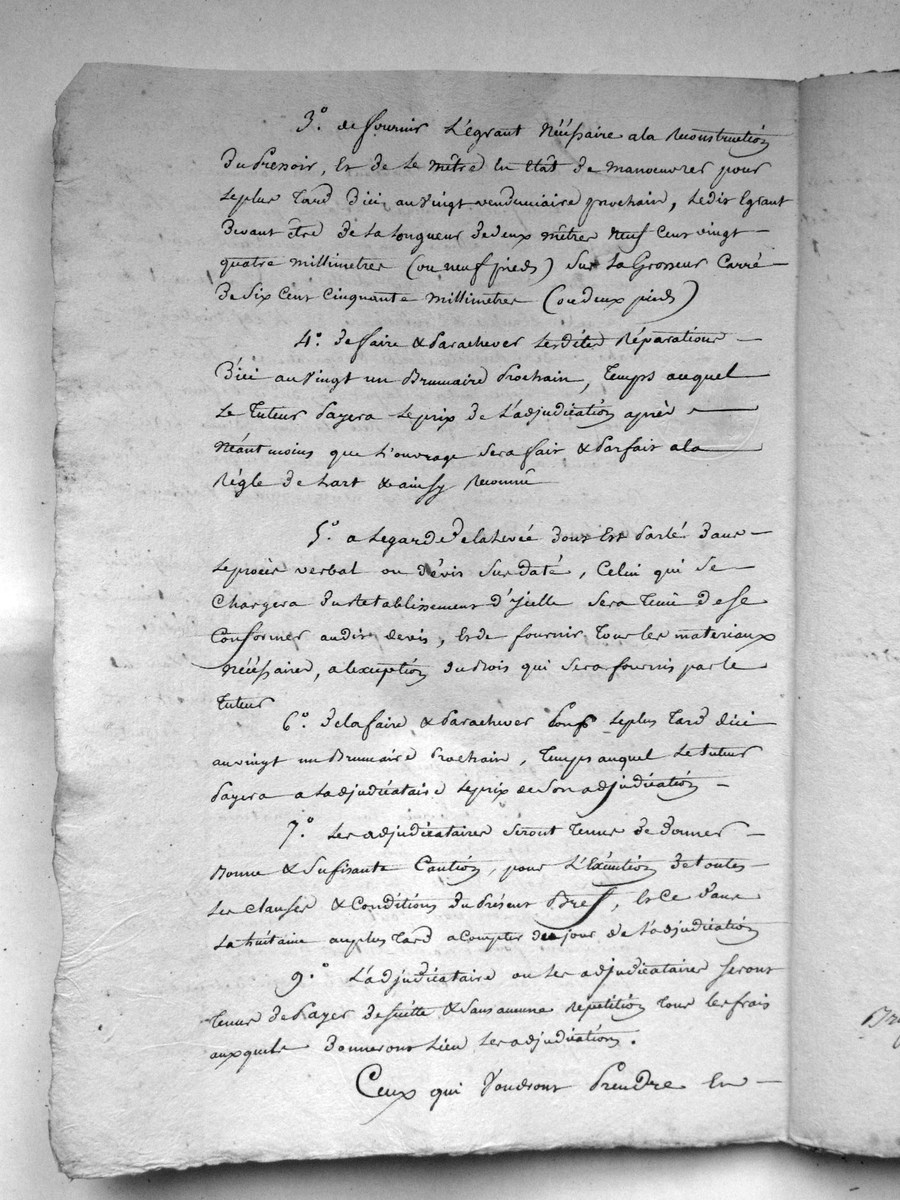 3.° de fournir L'égrant Nécéssaire a la Reconstruction
du Pressoir, Et de Le mettre En Etat de manoeuvrer pour
Le plus Tard D'ici au Vingt vendemiaire prochain, Ledit Egrant
Devant être de La Longueur de deux métres Neuf Cent vingt
quatre millimetres (ou neuf pieds) Sur La Grosseur Carré
de Six Cent Cinquante millimetres (ou deux pieds)
4.° de faire & Parachever Lesdites Réparations
D'ici au Vingt un Brumaire Prochain, Temps auquel
Le Tuteur Payera Le prix de L'adjudication après
Néantmoins que L'ouvrage Sera fait & Parfait a la
Régle de Lart & ainsy Reconnu
5.° a Legard de La Levée dont Est Parlé dans
Le procès verbal ou dévis Sus daté, Celui qui Se
Chargera du Retablissement d'Jcelle Sera Tenu de se
Conformer audit devis, Et de fournir Tous les materiaux
Nécéssaires, a Lexception du Bois qui Sera fournis par le
Tuteur
6.° de la faire & Parachever Le plus Tard d'ici
au vingt un Brumaire Prochain, Temps auquel Le tuteur
Payera a Ladjudicataire Le prix de Son adjudication
7.° Les adjudicataires Seront Tenus de donner
Bonne & Sufisante Caution, pour L'Exécution de toutes
Les Clauses & Conditions du Présent Bref, Et Ce dans
La huitaine au plus Tard a Compter du jour de L'adjudication
9.° L'adjudicataire ou Les adjudicataires Seront
Tenus de Payer de Suitte & Sans aucune Repetition Tous les frais
auxquels donneront Lieu Les adjudications.
Ceux qui Voudront Prendre En